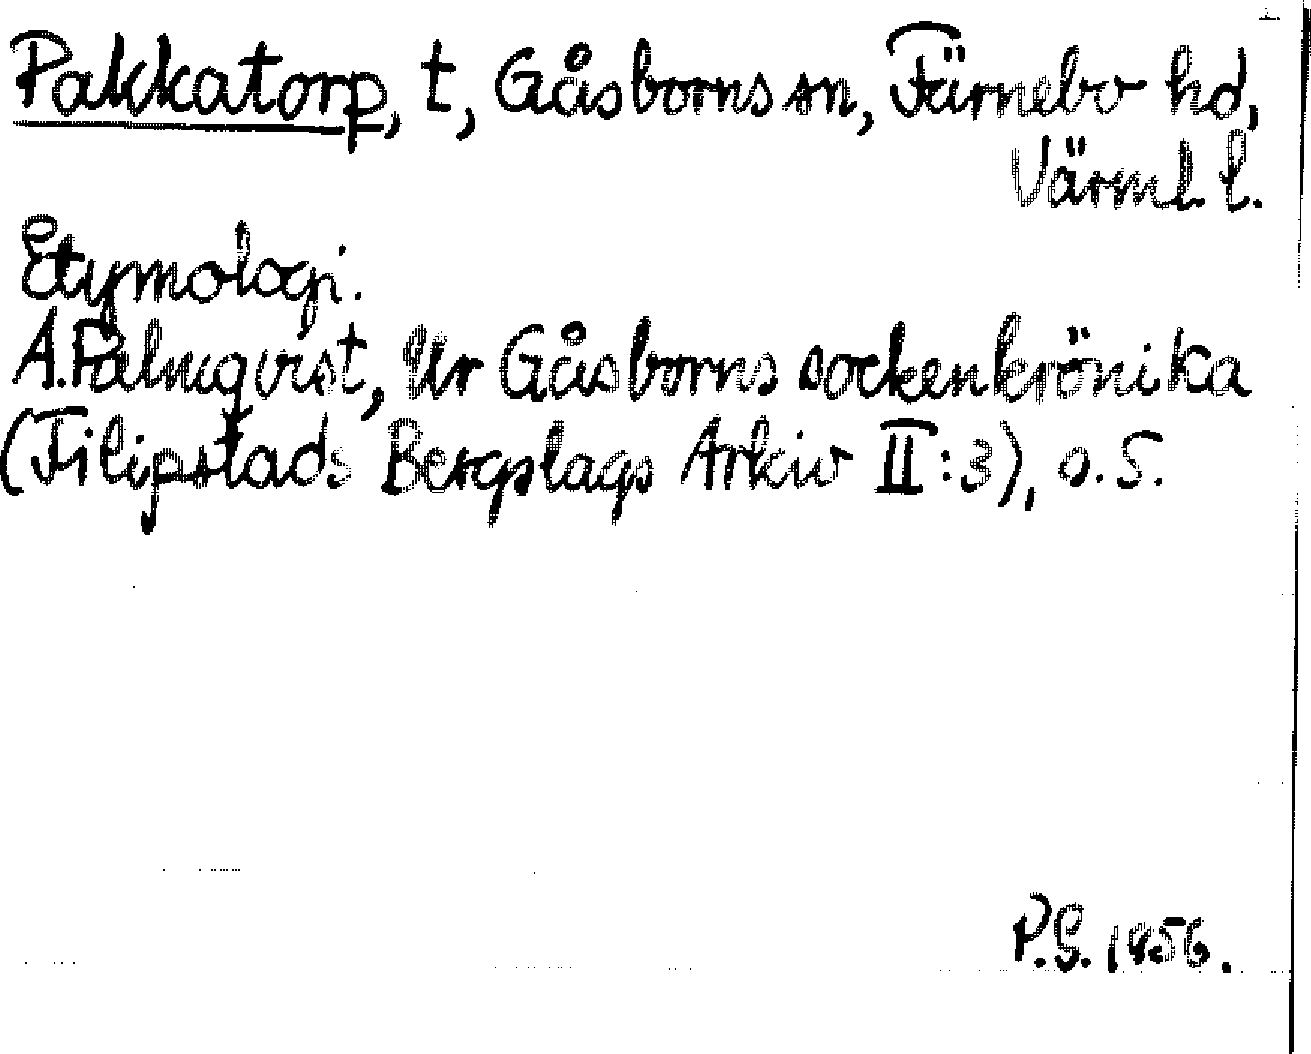 Pakkatorp, t, Gåsborns sn, Färnebo hd,
Värml. l.
Etymologi.
A. Palmqvist, Ur Gåsborns sockenkrönika
(Filipstads Bergslags Arkiv II:3), s. 5.
P.G. 1956.